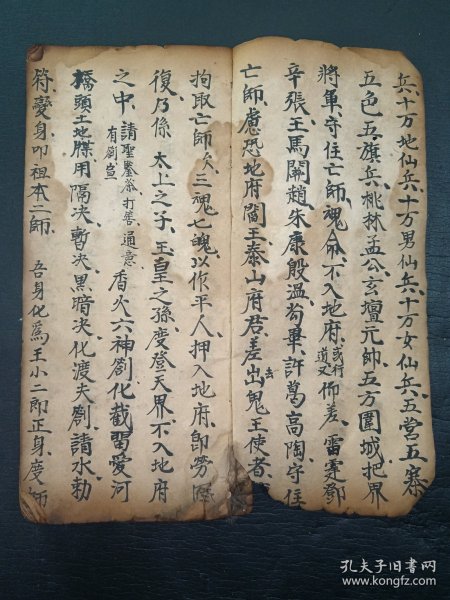 兵十万地仙兵十万男仙兵十万女仙兵五营五寨
五色五旗兵桃林孟公玄壇元帥五方圍城把界
將軍守住亡師魂命不入地府或行道又仰差雷霆鄧
辛張王馬關趙朱康殷温苟畢許萬高陶守住
亡師慮恐地府閻王泰山府君差出去鬼王使者
拘取亡師三魂七魄以作平人押入地府即勞
復乃係太上之子玉皇之孫变登天界不入地府
之中請聖鑒茶打筶通意有劄荳香火六神劄化截習愛河
橋頭土地牒用隔決暫決黑暗決化渡夫劄請水勅
符變身叩祖本二師吾身化為王小二郎正身度師
孔夫子旧書网
www.kongfz.com